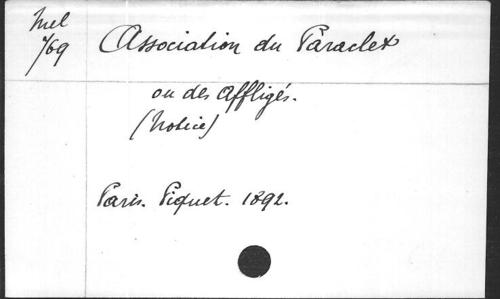 Mel
Association du Paraclet
ou des Affligés.
(Notice)
Paris. Piquet. 1892.